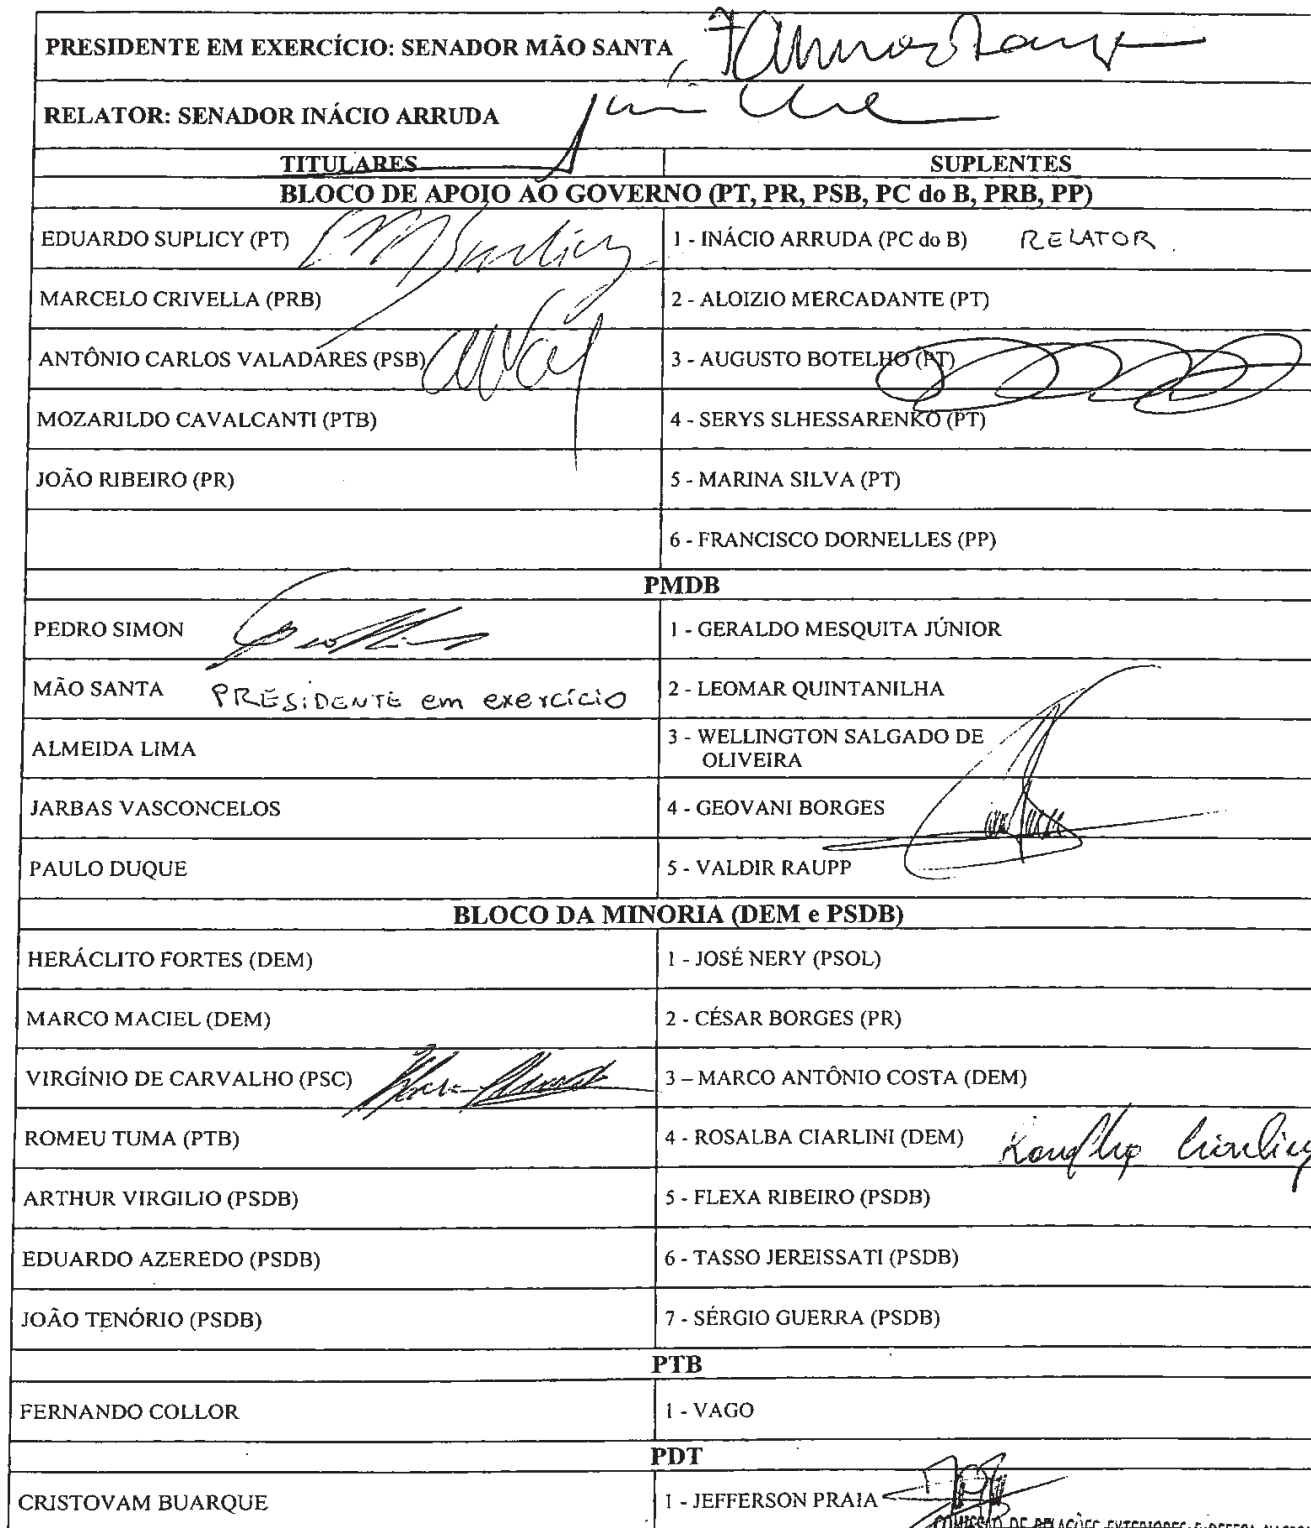 PRESIDENTE EM EXERCÍCIO: SENADOR MÃO SANTA
RELATOR: SENADOR INÁCIO ARRUDA
TITULARES SUPLENTES
BLOCO DE APOIO AO GOVERNO (PT, PR, PSB, PC do B, PRB, PP)
EDUARDO SUPLICY (PT) 1 - INÁCIO ARRUDA (PC do B) RELATOR
MARCELO CRIVELLA (PRB) 2 - ALOIZIO MERCADANTE (PT)
ANTÔNIO CARLOS VALADARES (PSB) 3 - AUGUSTO BOTELHO (PT)
MOZARILDO CAVALCANTI (PTB) 4 - SERYS SLHESSARENKO (PT)
JOÃO RIBEIRO (PR) 5 - MARINA SILVA (PT)
6 - FRANCISCO DORNELLES (PP)
PMDB
PEDRO SIMON 1 - GERALDO MESQUITA JÚNIOR
MÃO SANTA PRESIDENTE em exercício 2 - LEOMAR QUINTANILHA
ALMEIDA LIMA 3 - WELLINGTON SALGADO DE
OLIVEIRA
JARBAS VASCONCELOS 4 - GEOVANI BORGES
PAULO DUQUE 5 - VALDIR RAUPP
BLOCO DA MINORIA (DEM e PSDB)
HERÁCLITO FORTES (DEM) 1 - JOSÉ NERY (PSOL)
MARCO MACIEL (DEM) 2 - CÉSAR BORGES (PR)
VIRGÍNIO DE CARVALHO (PSC) 3 – MARCO ANTÔNIO COSTA (DEM)
ROMEU TUMA (PTB) 4 - ROSALBA CIARLINI (DEM)
ARTHUR VIRGILIO (PSDB) 5 - FLEXA RIBEIRO (PSDB)
EDUARDO AZEREDO (PSDB) 6 - TASSO JEREISSATI (PSDB)
JOÃO TENÓRIO (PSDB) 7 - SÉRGIO GUERRA (PSDB)
PTB
FERNANDO COLLOR 1 - VAGO
PDT
CRISTOVAM BUARQUE 1 - JEFFERSON PRAIA
COMISSÃO DE RELAÇÕES EXTERIORES E DEFESA